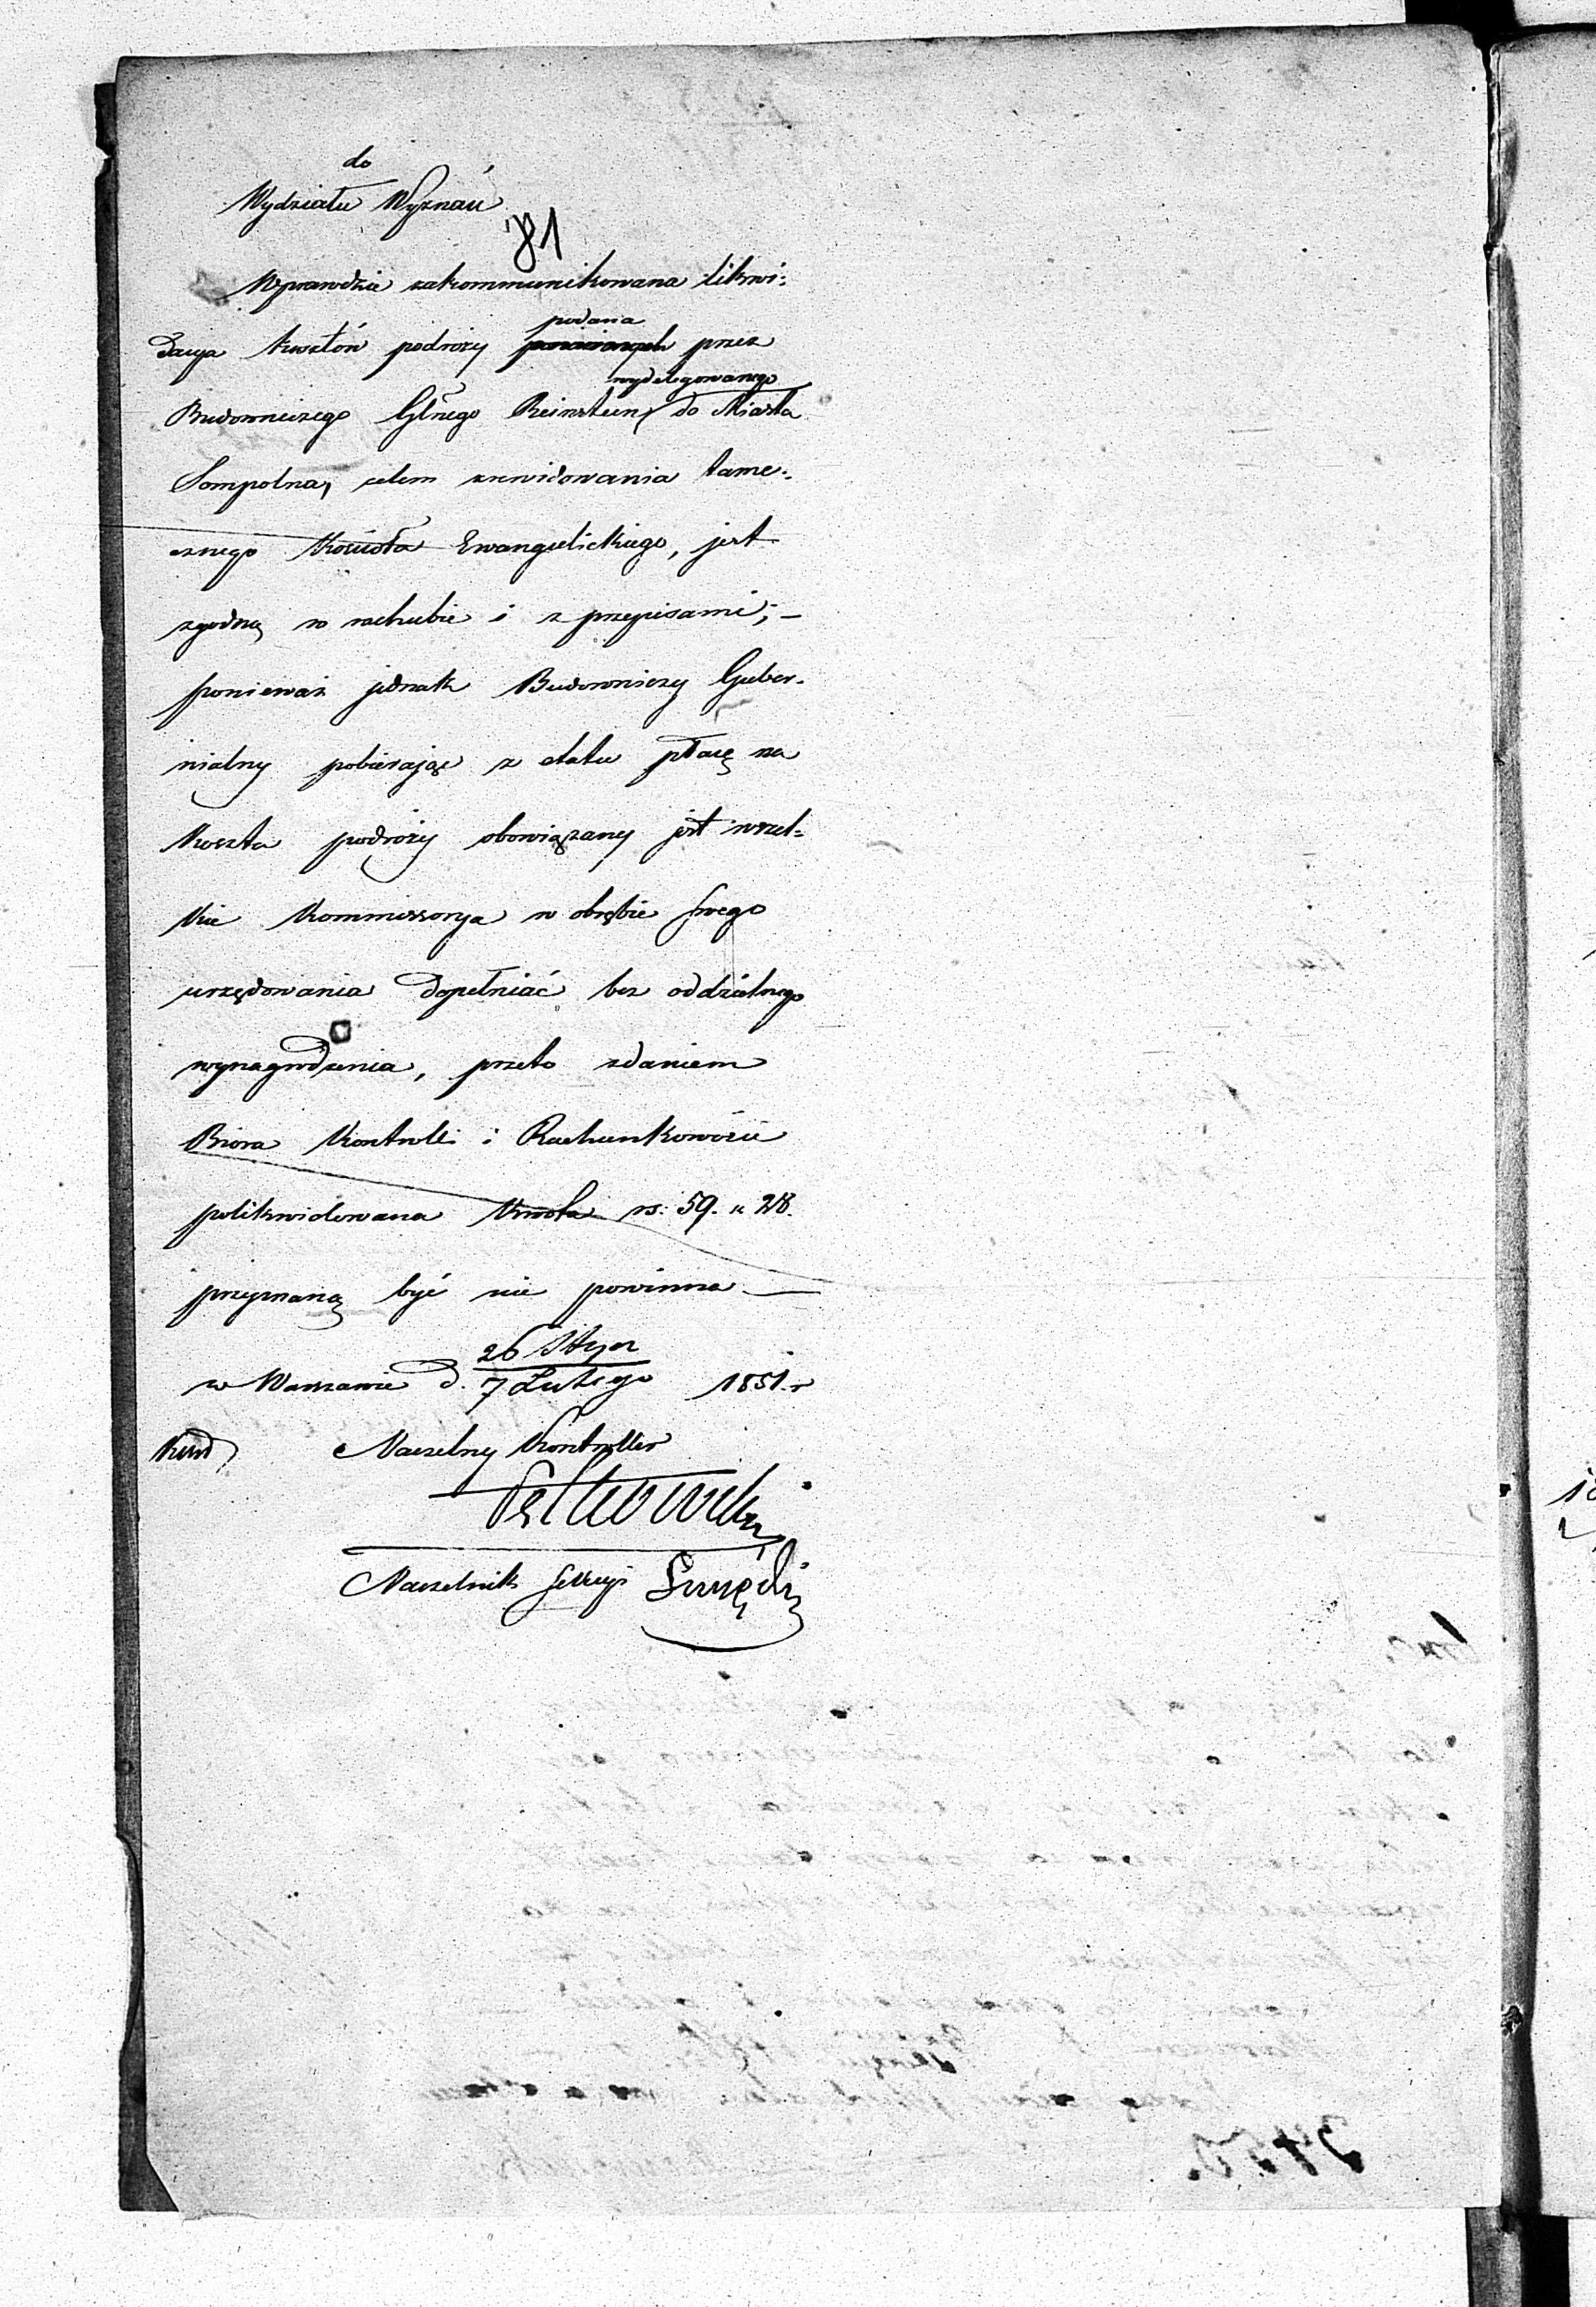 do
Wydziału Wyznań
81
Wprawdzie zakommunikowana likwi-
dacya kosztów podróży podana przez
Budowniczego Glnego Reinstein wydelegowanego do Miasta
Sompolna, celem zrewidowania tame-
cznego Kościoła Ewangelickiego, jest
zgodną w rachubie i z przepisami; —
ponieważ jednak Budowniczy Guber-
nialny pobierając z etatu płacę na
koszta podróży obowiązany jest wszel-
kie Kommissorya w obrębie swego
urzędowania dopełniać bez oddzielnego
wynagrodzenia, przeto zdaniem
Biora Kontrolli i Rachunkowości
polikwidowana kwota rs: 59. „ 28.
przyznaną być nie powinna —
w Warszawie d. 26 Stycz / 7 Lutego 1851. r
Naczelny Kontroller
Naczelnik Sekcyi